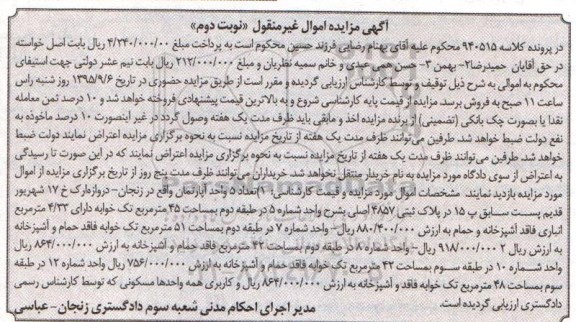 آگهی مزایده اموال غیرمنقول «نوبت دوم»
در پرونده کلاسه ۹۴۰۵۱۵ محکوم علیه آقای بهنام رضایی فرزند حسین محکوم است به پرداخت مبلغ ۴/۲۴۰/۰۰۰/۰۰ ریال بابت اصل خواسته
در حق آقایان حمیدرضا۲- بهمن ۳- حسن همی عبدی و خانم سمیه نظریان و مبلغ ۲۱۲/۰۰۰/۰۰۰ ریال بابت نیم عشر دولتی جهت استیفای
محکوم به اموالی به شرح ذیل توقیف و توسط کارشناس ارزیابی گردیده و مقرر است از طریق مزایده حضوری در تاریخ ۱۳۹۵/۹/۶ روز شنبه راس
ساعت ۱۱ صبح به فروش برسد. مزایده از قیمت پایه کارشناسی شروع و به بالاترین قیمت پیشنهادی فروخته خواهد شد و ۱۰ درصد ثمن معامله
نقدا یا بصورت چک بانکی (تضمینی) از برنده مزایده اخذ و مابقی باید ظرف مدت یک هفته وصول گردد در غیر اینصورت ۱۰ درصد ماخوذه به
نفع دولت ضبط خواهد شد. طرفین می‌توانند ظرف مدت یک هفته از تاریخ مزایده نسبت به نحوه برگزاری مزایده اعتراض نمایند دولت ضبط
خواهد شد. طرفین می‌توانند ظرف مدت یک هفته از تاریخ مزایده نسبت به نحوه برگزاری مزایده اعتراض نمایند که در این صورت تا رسیدگی
به اعتراض از سوی دادگاه مورد مزایده به نام خریدار منتقل نخواهد شد. خریداران می‌توانند ظرف مدت پنج روز از تاریخ برگزاری مزایده از اموال
مورد مزایده بازدید نمایند. مشخصات اموال مورد مزایده و قیمت کارشناسی: ۱)تعداد ۵ واحد آپارتمان واقع در زنجان- دروازه‌ارک خ ۱۷ شهریور
قدیم بسست سابق پ ۱۵ در پلاک ثبتی ۴۸۵۷ اصلی بشرح واحد شماره ۵ در طبقه دوم بمساحت ۴۵ مترمربع تک خوابه دارای ۴/۳۳ مترمربع
انباری فاقد آشپزخانه و حمام به ارزش ۸۸۰/۴۰۰/۰۰۰ ریال- واحد شماره ۷ در طبقه دوم بمساحت ۵۱ مترمربع تک خوابه فاقد حمام و آشپزخانه
به ارزش ریال ۹۱۸/۰۰۰/۰۰۰ ۲ ریال- واحد شماره ۸ در طبقه دوم بمساحت ۴۲ مترمربع فاقد حمام و آشپزخانه به ارزش ۸۶۴/۰۰۰/۰۰۰ ریال
واحد شماره ۱۰ در طبقه سوم بمساحت ۴۲ مترمربع تک خوابه فاقد حمام و آشپزخانه به ارزش ۷۵۶/۰۰۰/۰۰۰ ریال واحد شماره ۱۲ در طبقه
سوم بمساحت ۴۸ مترمربع تک خوابه فاقد و آشپزخانه به ارزش ۸۶۴/۰۰۰/۰۰۰ ریال و کاربری همه واحدها مسکونی که توسط کارشناس رسمی
دادگستری ارزیابی گردیده است.
مدیر اجرای احکام مدنی شعبه سوم دادگستری زنجان-عباسی